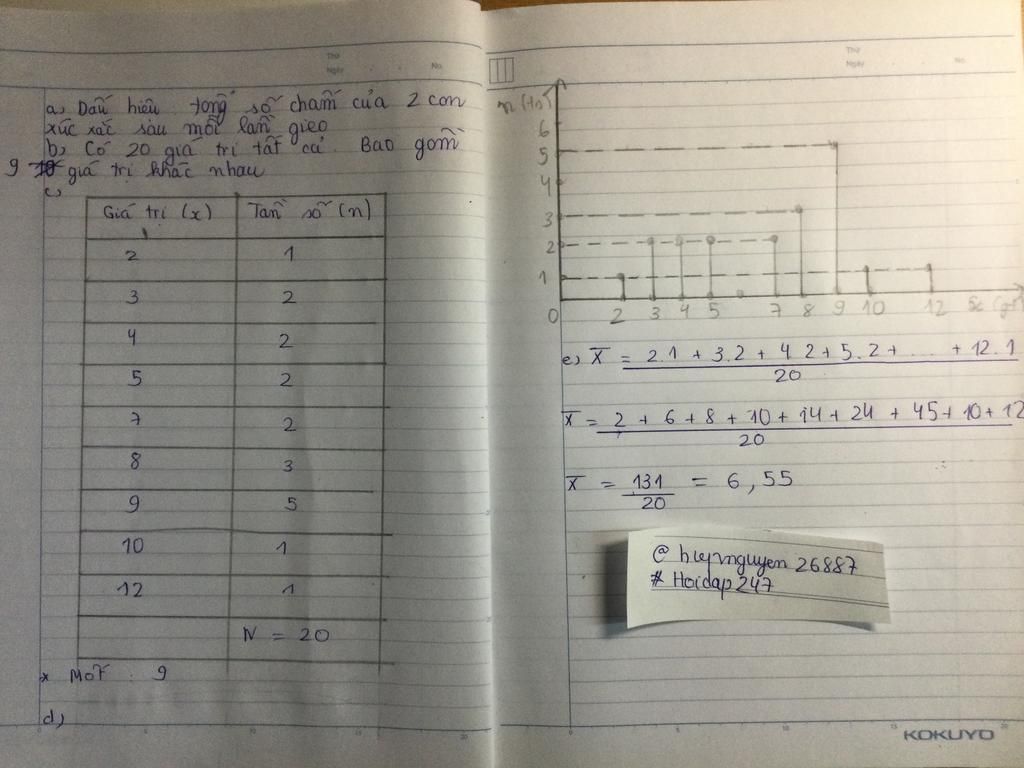 Thứ
Ngày
No.
a, Dấu hiệu tổng số chấm của 2 con
xúc xắc sau mỗi lần gieo
b, Có 20 giá trị tất cả. Bao gồm
9 giá trị khác nhau
c,
Giá trị (x) Tần số (n)
2 1
3 2
4 2
5 2
7 2
8 3
9 5
10 1
12 1
N = 20
* Mốt : 9
d,
Thứ
Ngày
No.
n (ts)
6
5
4
3
2
1
0 2 3 4 5 7 8 9 10 12
e, X̅ = 2.1 + 3.2 + 4.2 + 5.2 + .... + 12.1
20
X̅ = 2 + 6 + 8 + 10 + 14 + 24 + 45 + 10 + 12
20
X̅ = 131 = 6,55
20
#Hoidap247
KOKUYO